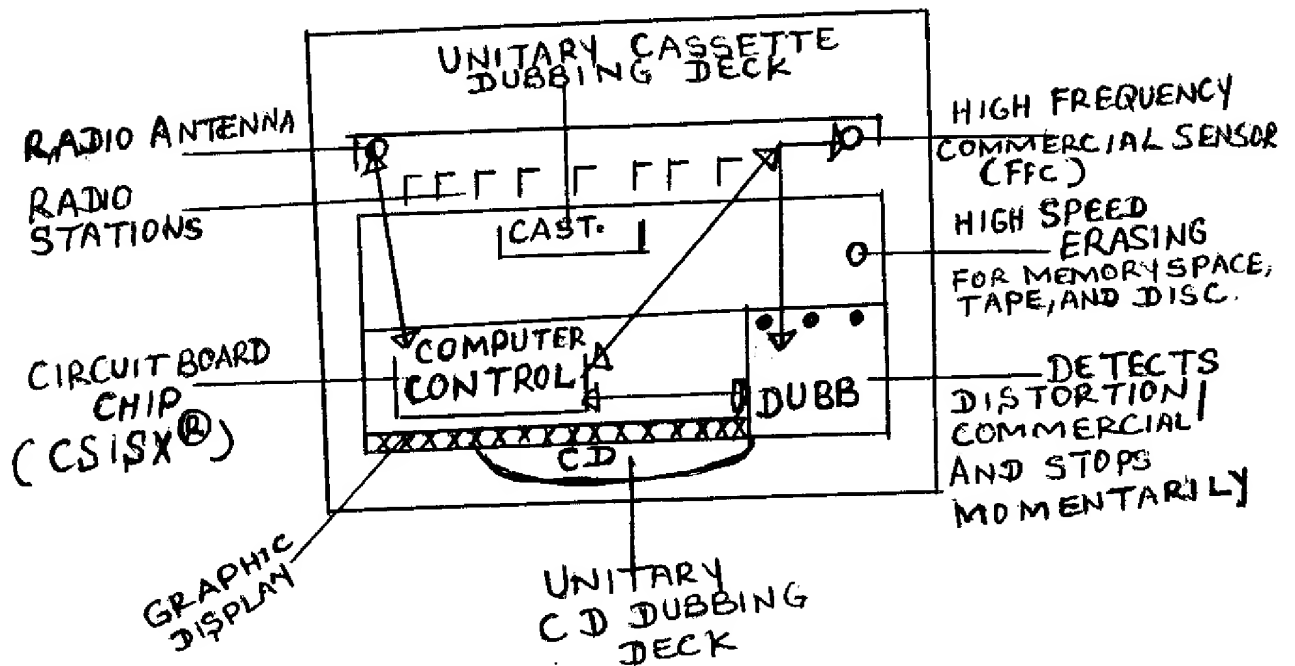 UNITARY CASSETTE
DUBBING DECK
RADIO ANTENNA
RADIO
STATIONS
HIGH FREQUENCY
COMMERCIAL SENSOR
(FFC)
HIGH SPEED
ERASING
FOR MEMORY SPACE,
TAPE, AND DISC.
CAST.
COMPUTER
CONTROL
DUBB
CIRCUIT BOARD
CHIP
(CSiSX®)
DETECTS
DISTORTION/
COMMERCIAL
AND STOPS
MOMENTARILY
CD
GRAPHIC
DISPLAY
UNITARY
CD DUBBING
DECK